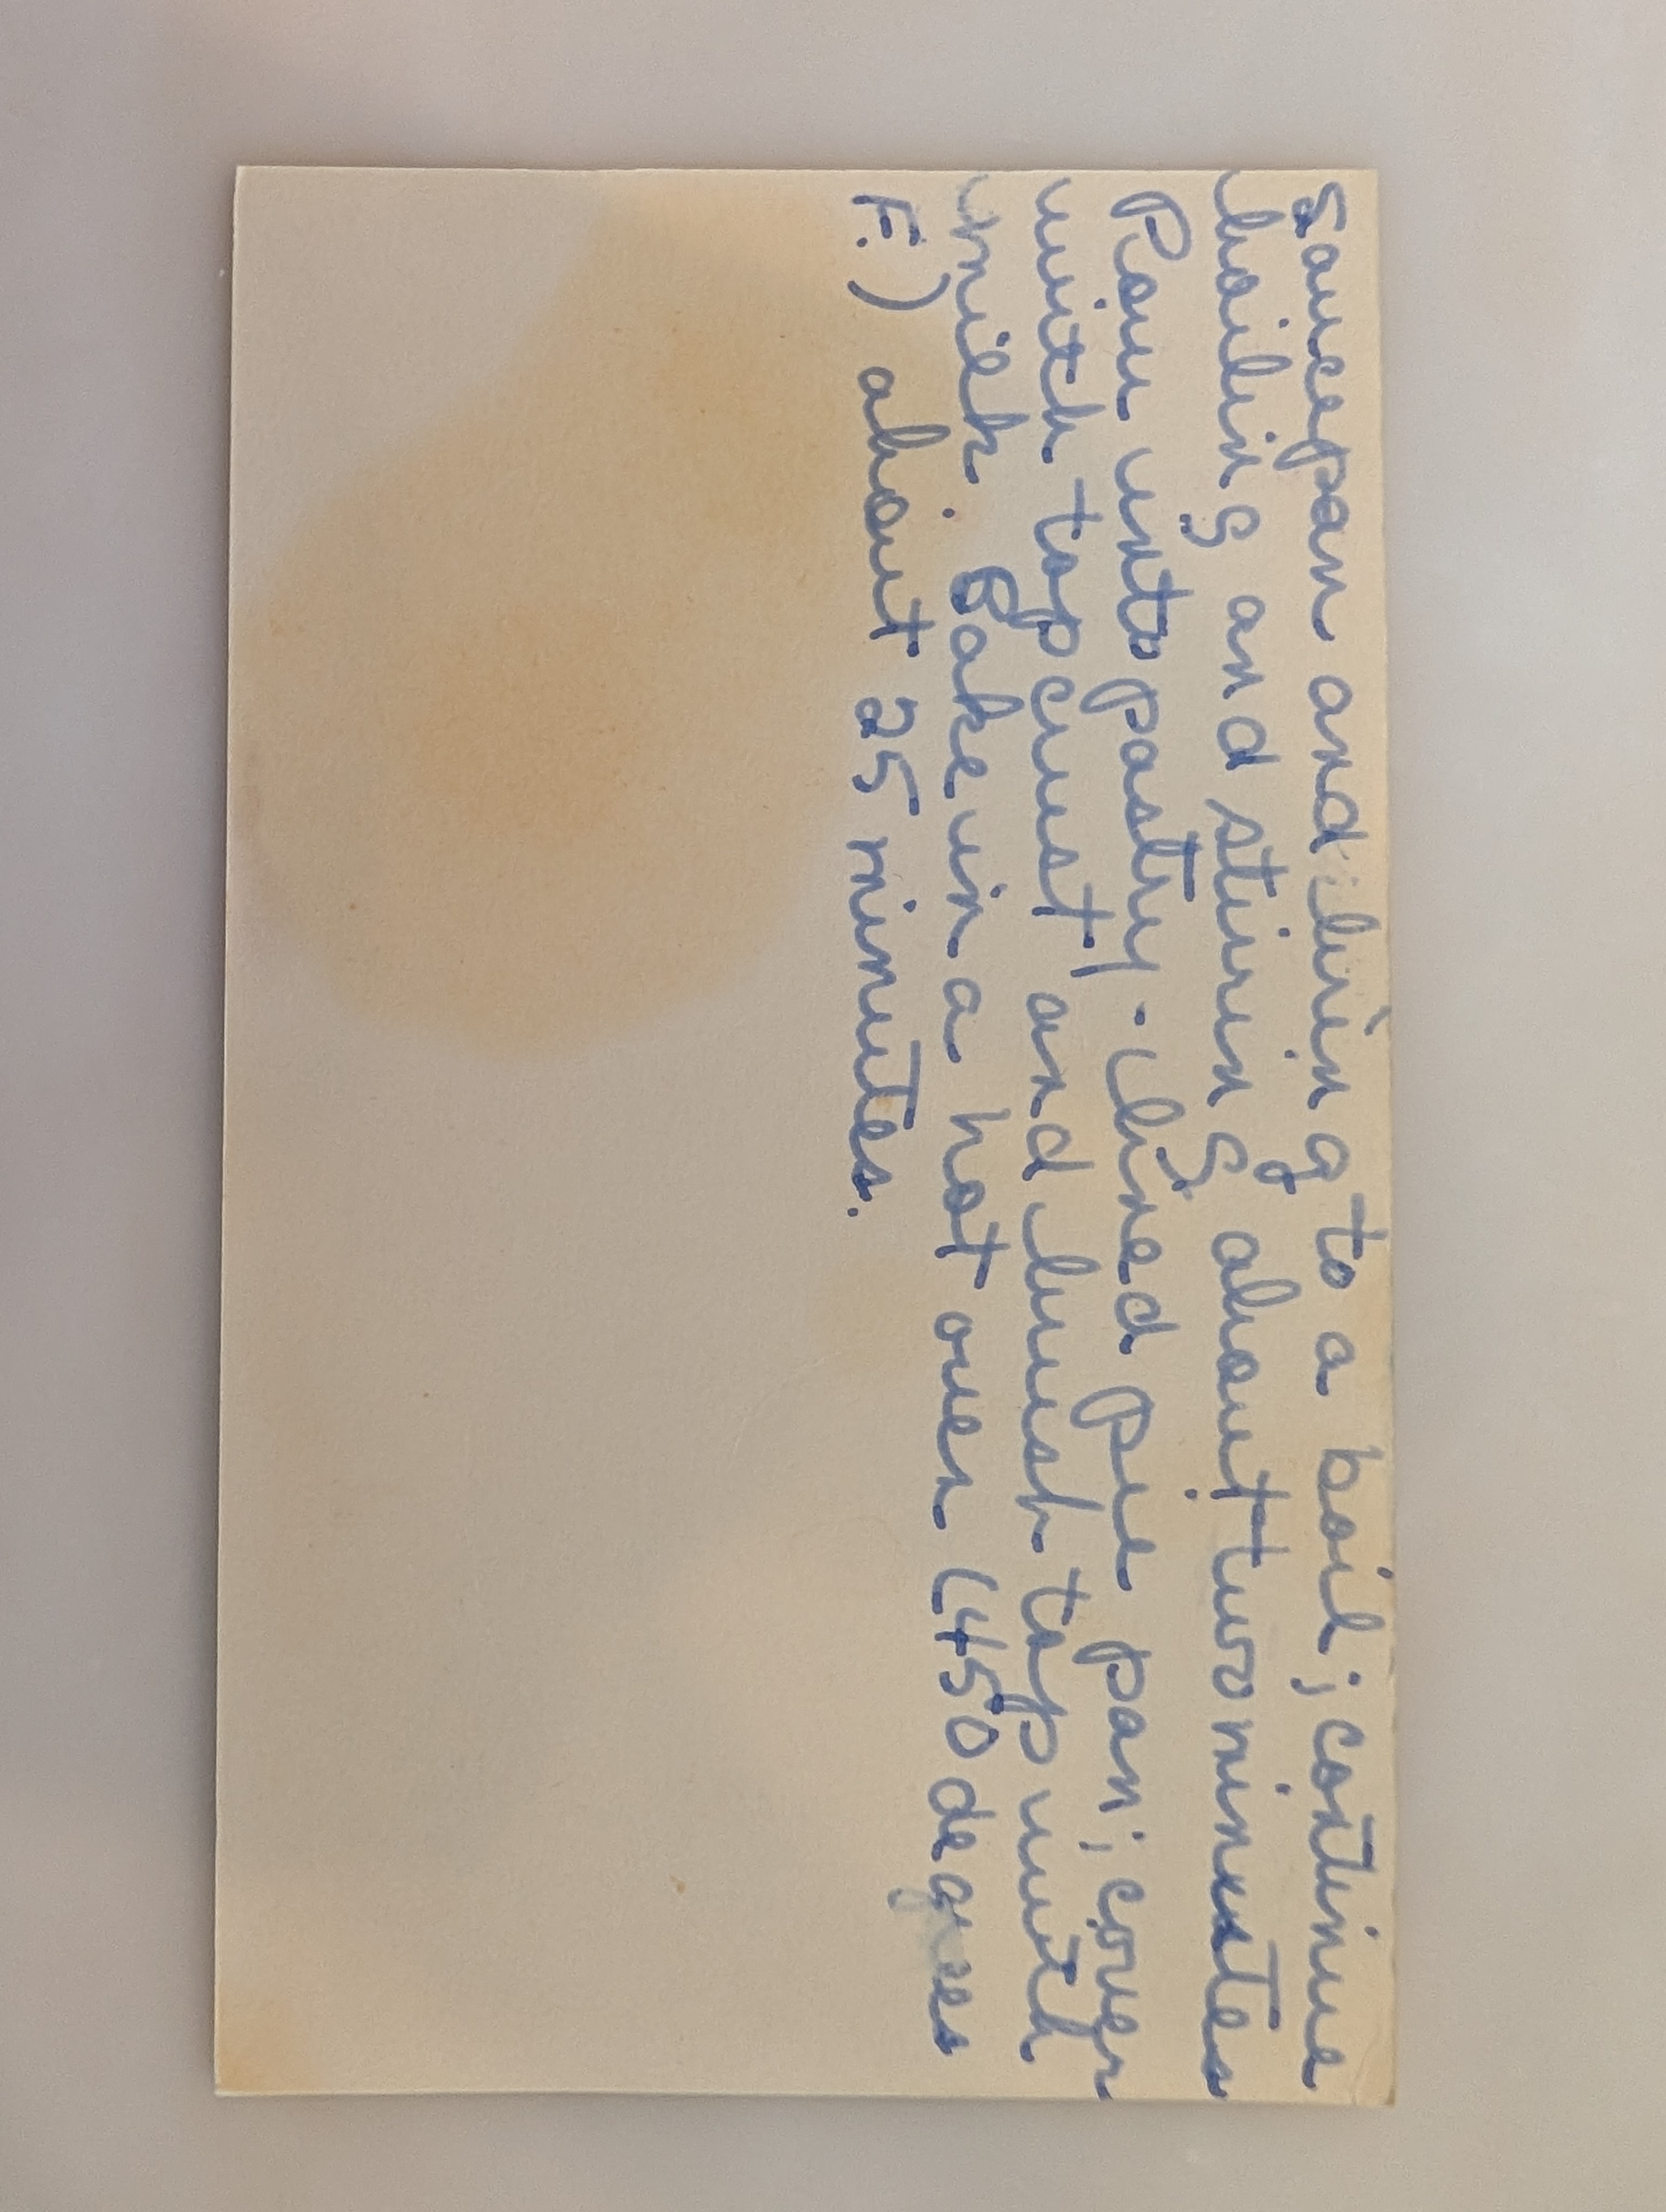 saucepan and bring to a boil; continue
boiling and stiring about two minutes
Pour into pastry-lined pie pan; cover
with top crust and brush top with
milk. Bake in a hot oven (450 degrees
F.) about 25 minutes.